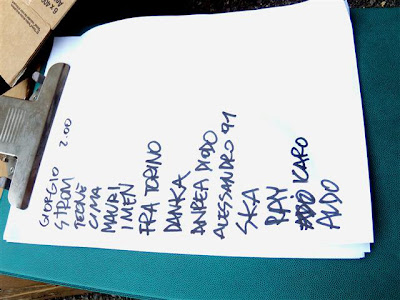 GIORGIO
STROM 2.00
TEONE
CIMA
MAURI
IMEN
FRA TORINO
DANKA
ANDREA DIODO
ALESSANDRO 91
SKA
RAY
ICARO
ALDO